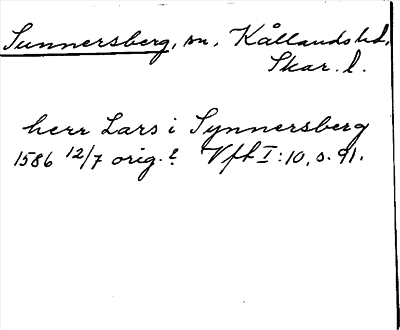 Sunnersberg, sn, Kållands hd,
Skar. l.
herr Lars i Synnersberg
1586 12/7 orig. ? Vft I:10, s. 91.